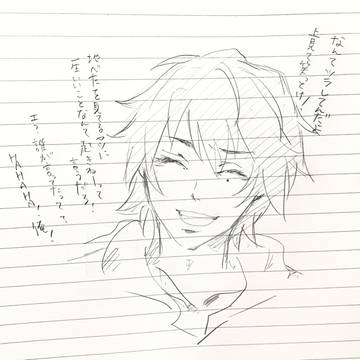 なんてツラしてんだよ
上見て笑っとけ！
地べたを見てるヤツに
生いことなんて起きねーって
言うだろ！
エ？誰が言ってたって？
HAHAHA！俺！